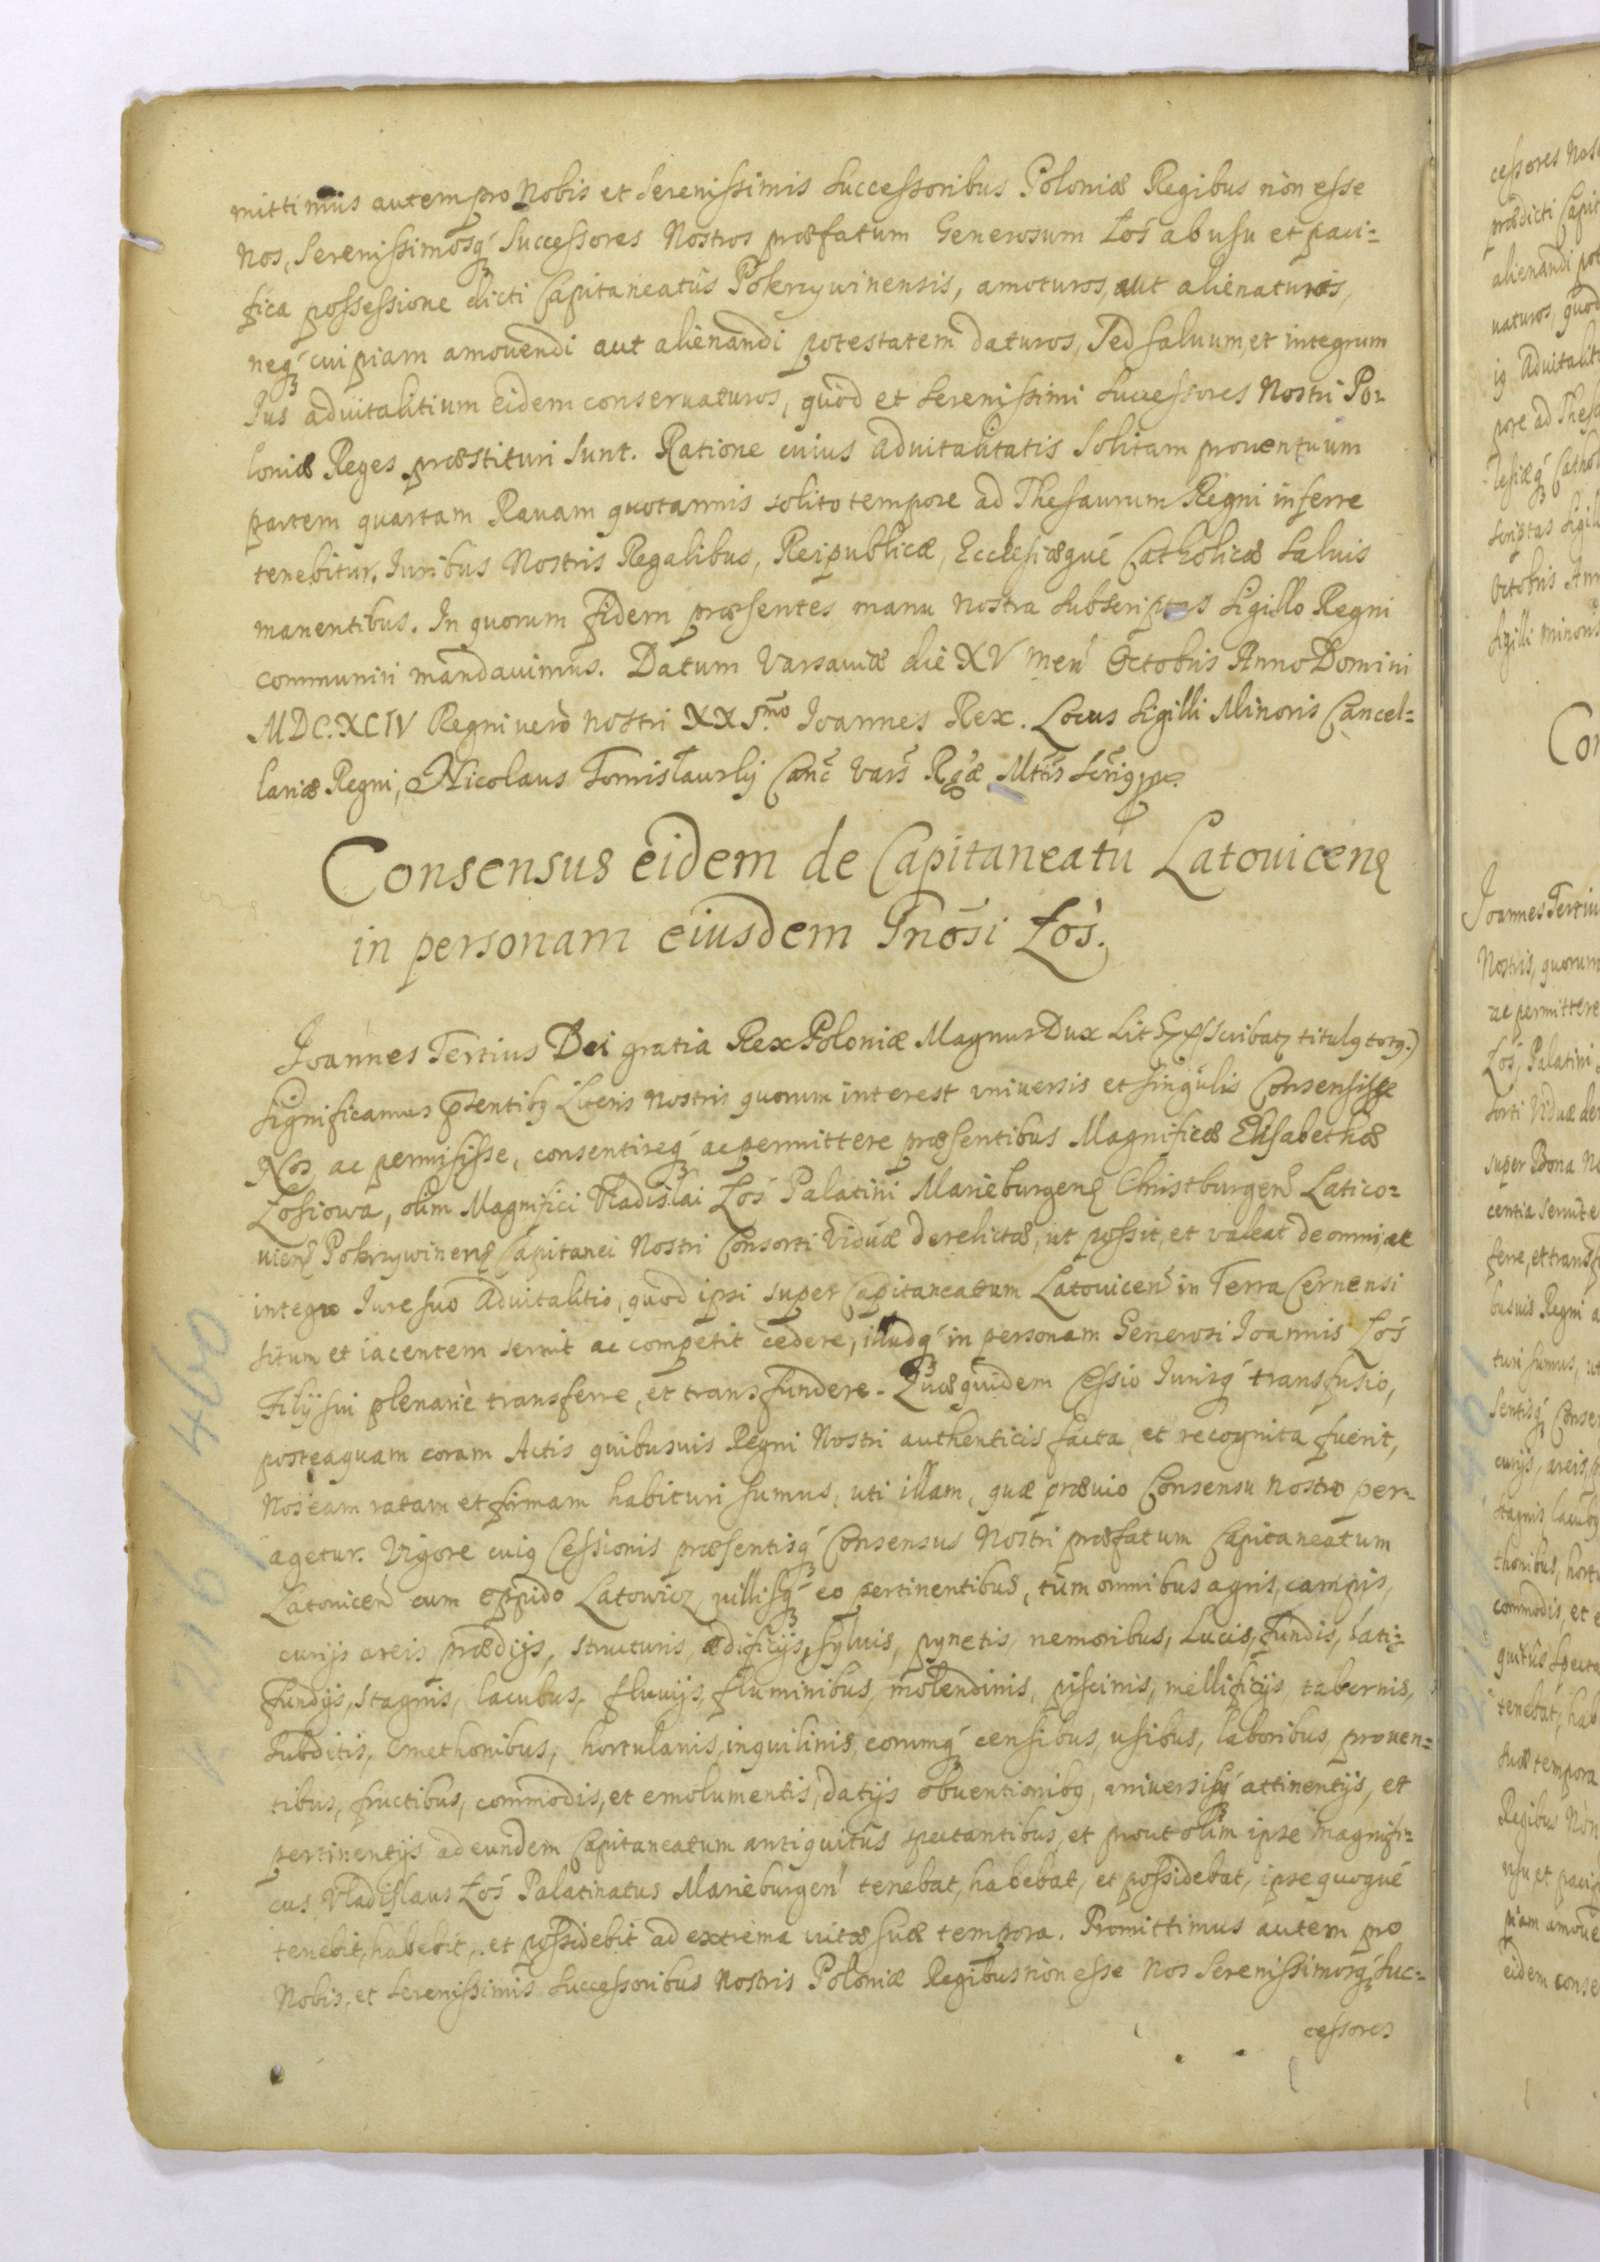 mittimus autem pro Nobis et Serenissimis Successoribus Poloniæ Regibus non esse
Nos, Serenissimosq́ Successores Nostros præfatum Generosum Łoś ab usu et paci-
fica possessione dicti Capitaneatûs Pokrzywinensis, amoturos, aut alienaturos,
neq́ cuipiam amovendi aut alienandi potestatem daturos, Sed saluum, et integrum
Ius aduitalitium eidem conseruaturos, quod et Serenissimi Successores Nostri Po-
loniæ Reges præstituri sunt. Ratione cuius aduitalitatis Solitam prouentuum
partem quartam Rauam quotannis solito tempore ad Thesaurum Regni inferre
tenebitur. Iuribus Nostris Regalibus, Reipublicæ, Ecclesiæqué Catholicæ Saluis
manentibus. In quorum fidem præsentes manu nostra subscriptas Sigillo Regni
communiri mandauimus. Datum Varsauiæ die XV Men̄ Octobris Anno Domini
MDC.XCIV Regni verò nostri XXI.mo Ioannes Rex. Locus Sigilli Minoris Cancel-
lariæ Regni, Nicolaus Tomisławsky Canc̄ Vars̄
Consensus eidem de Capitaneatu Latouicen̄
in personam eiusdem Gnōsi Łoś.
Ioannes Tertius Dei gratia Rex Poloniæ Magnus Dux Lit (scribatʒ titulꝯ totꝯ.)
Significamus pñtibꝯ Literis nostris quorum interest vniversis et singulis Consensisse
Nos ac permisisse, consentireq́ ac permittere præsentibus Magnificæ Elisabethæ
Łosiowa, olim Magnifici Vladislai Łoś Palatini Marieburgen̄ Christburgen̄ Latico-
uien̄ Pokrzywinen̄ Capitanei Nostri Consorti Viduæ derelictæ, ut possit, et valeat de omni, ac
integro Iure suo Aduitalitio, quod ipsi super Capitaneatum Latouicen̄ in Terra Cernensi
situm et iacentem seruit ac competit cedere, illudq́ in personam Generosi Ioannis Łoś
Filij sui plenariè transferre, et transfundere. Quæ quidem Cessio Iurisq́ transfusio,
posteaquam coram Actis quibusuis Regni Nostri authenticis facta, et recognita fuerit,
Nos eam ratam et firmam habituri sumus, uti illam, quæ præuio Consensu nostro per-
agetur. Vigore cuiꝯ Cessionis præsentisq́ Consensus Nostri præfatum Capitaneatum
Latouicen̄ cum oppido Latowicz villisq́ eo pertinentibus, tùm omnibus agris, campis,
curijs areis, prædijs, structuris, ædificijs, syluis, pynetis, nemoribus, Lucis, fundis, lati-
fundijs, stagnis, lacubus, fluuijs, fluminibus, molendinis, piscinis, mellificijs tabernis,
Subditis, Cmethonibus, hortulanis, inquilinis, eorumq́ censibus, usibus, laboribus, prouen-
tibus, fructibus, commodis, et emolumentis, datijs obuentionibꝯ, vniversisq́ attinentijs, et
pertinentijs ad eundem Capitaneatum antiquitûs spectantibus, et prout olim ipse Magnifi-
cus Vladislaus Łoś Palatinatus Marieburgen̄ tenebat, habebat, et possidebat, ipse quoqué
tenebit, habebit, et possidebit ad extrema vitæ suæ tempora. Promittimus autem pro
Nobis, et Serenissimis Successoribus Nostris Poloniæ Regibus non esse Nos Serenissimosq́ Suc-
cessores